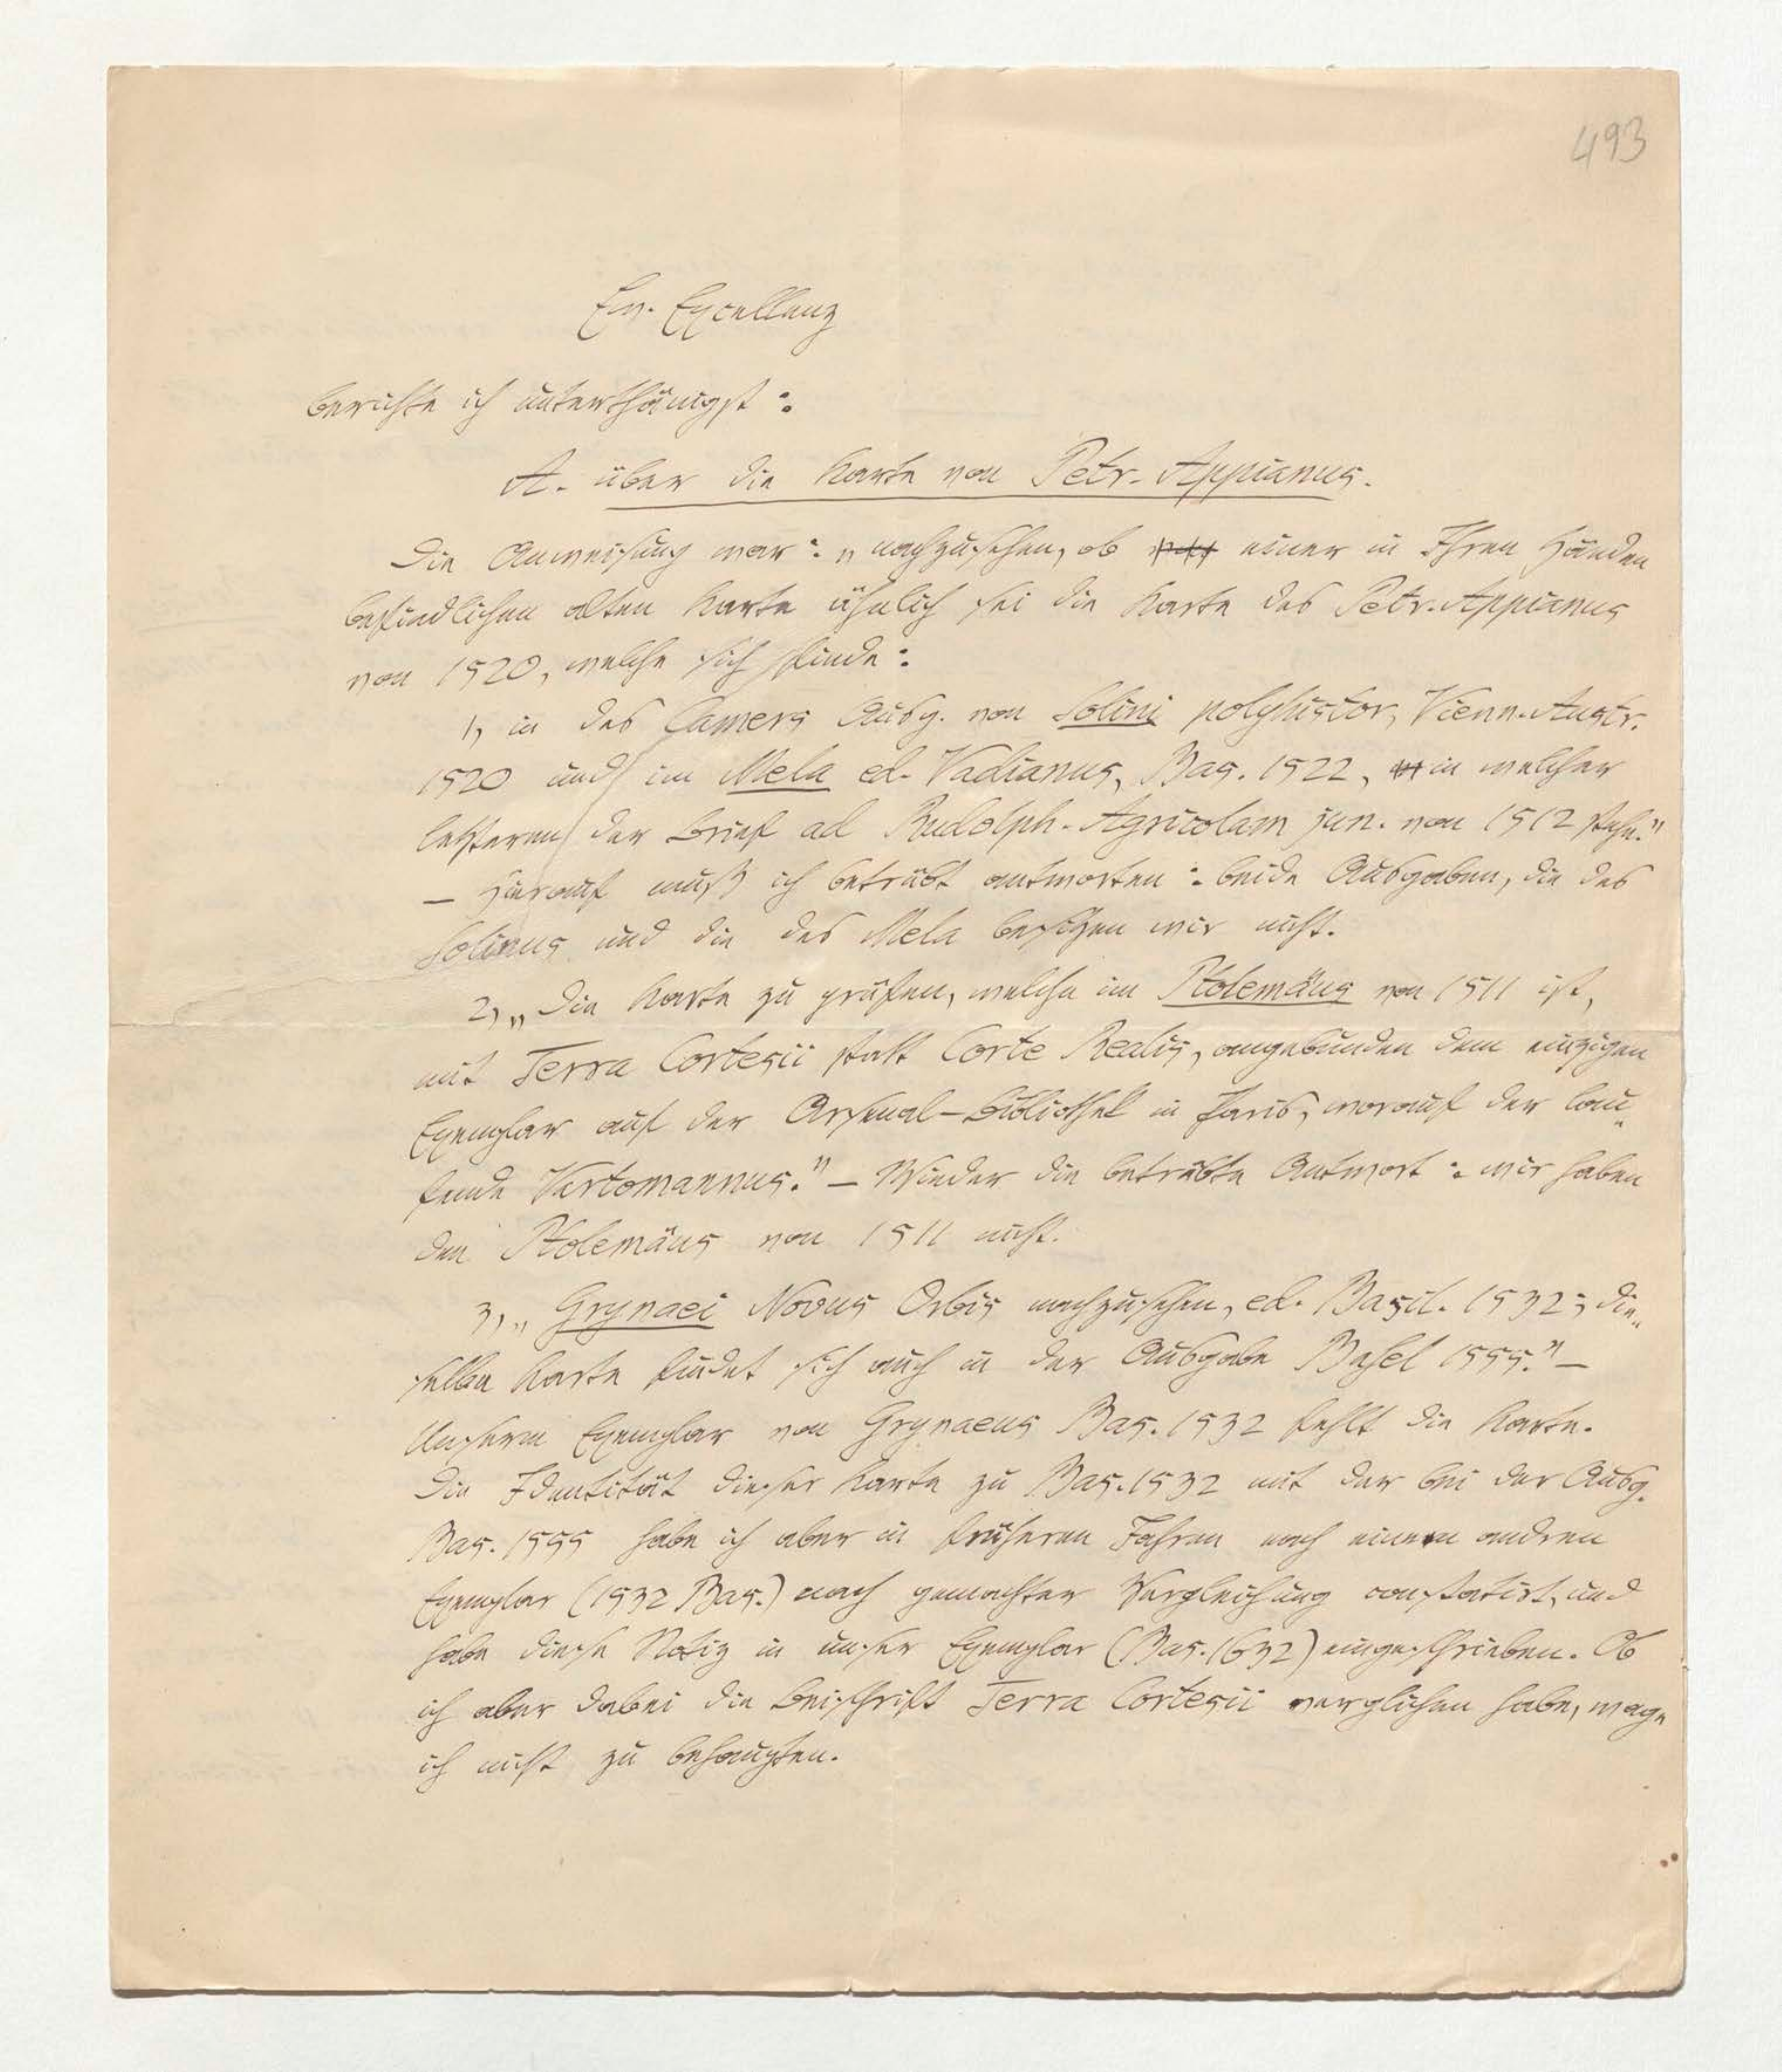 493
Ew. Excellenz
berichte ich unterthänigst:
A. über die Karte von Petr. Appianus.
Die Anweisung war: „nachzusehen, ob einer in Ihren Händen
befindlichen alten Karte ähnlich sei die Karte des Petr. Appianus
von 1520, welche sich finde:
1, in des Camers Ausg. von Solini polyhistor, Vienn. Austr.
1520 und im Mela ed. Vadianus, Bas. 1522, in welcher
letzteren der Brief ad Rudolph. Agricolam jun. von 1512 stehe."
— Hierauf muß ich betrübt antworten: beide Ausgaben, die des
Solinus und die des Mela besitzen wir nicht.
2, „Die Karte zu prüfen, welche im Ptolemäus von 1511 ist,
mit Terra Cortesii statt Corte Realis, angebunden dem einzigen
Exemplar auf der Arsenal-Bibliothek in Paris, worauf der lau„
fende Vartomannus." — Wieder die betrübte Antwort: wir haben
den Ptolemäus von 1511 nicht.
3, „Grynaei Novus Orbis nachzusehen, ed. Basil. 1532; die„
selbe Karte findet sich auch in der Ausgabe Basel 1555." —
Unserm Exemplar von Grynaeus Bas. 1532 fehlt die Karte.
Die Identität dieser Karte zu Bas. 1532 mit der bei der Ausg.
Bas. 1555 habe ich aber in früheren Jahren nach einem andren
Exemplar (1532 Bas.) nach gemachter Vergleichung constatirt, und
habe diese Notiz in unser Exemplar (Bas. 1632) eingeschrieben. Ob
ich aber dabei die Beischrift Terra Cortesii verglichen habe, wage
ich nicht zu behaupten.